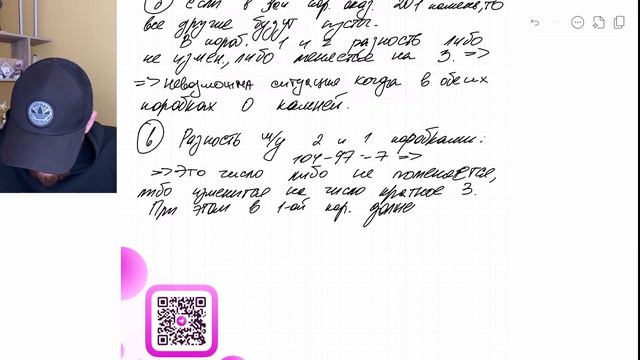 б) Если в 3ей кор. оказ. 201 камень, то
все другие будут пусты.
В короб. 1 и 2 разность либо
не измен., либо меняется на 3. =>
=> Невозможна ситуация когда в обеих
коробках 0 камней.
в) Разность м/у 2 и 1 коробками:
104-97=7 =>
=> Это число либо не поменяется,
либо изменится на число кратное 3.
При этом в 1-ой кор. долже